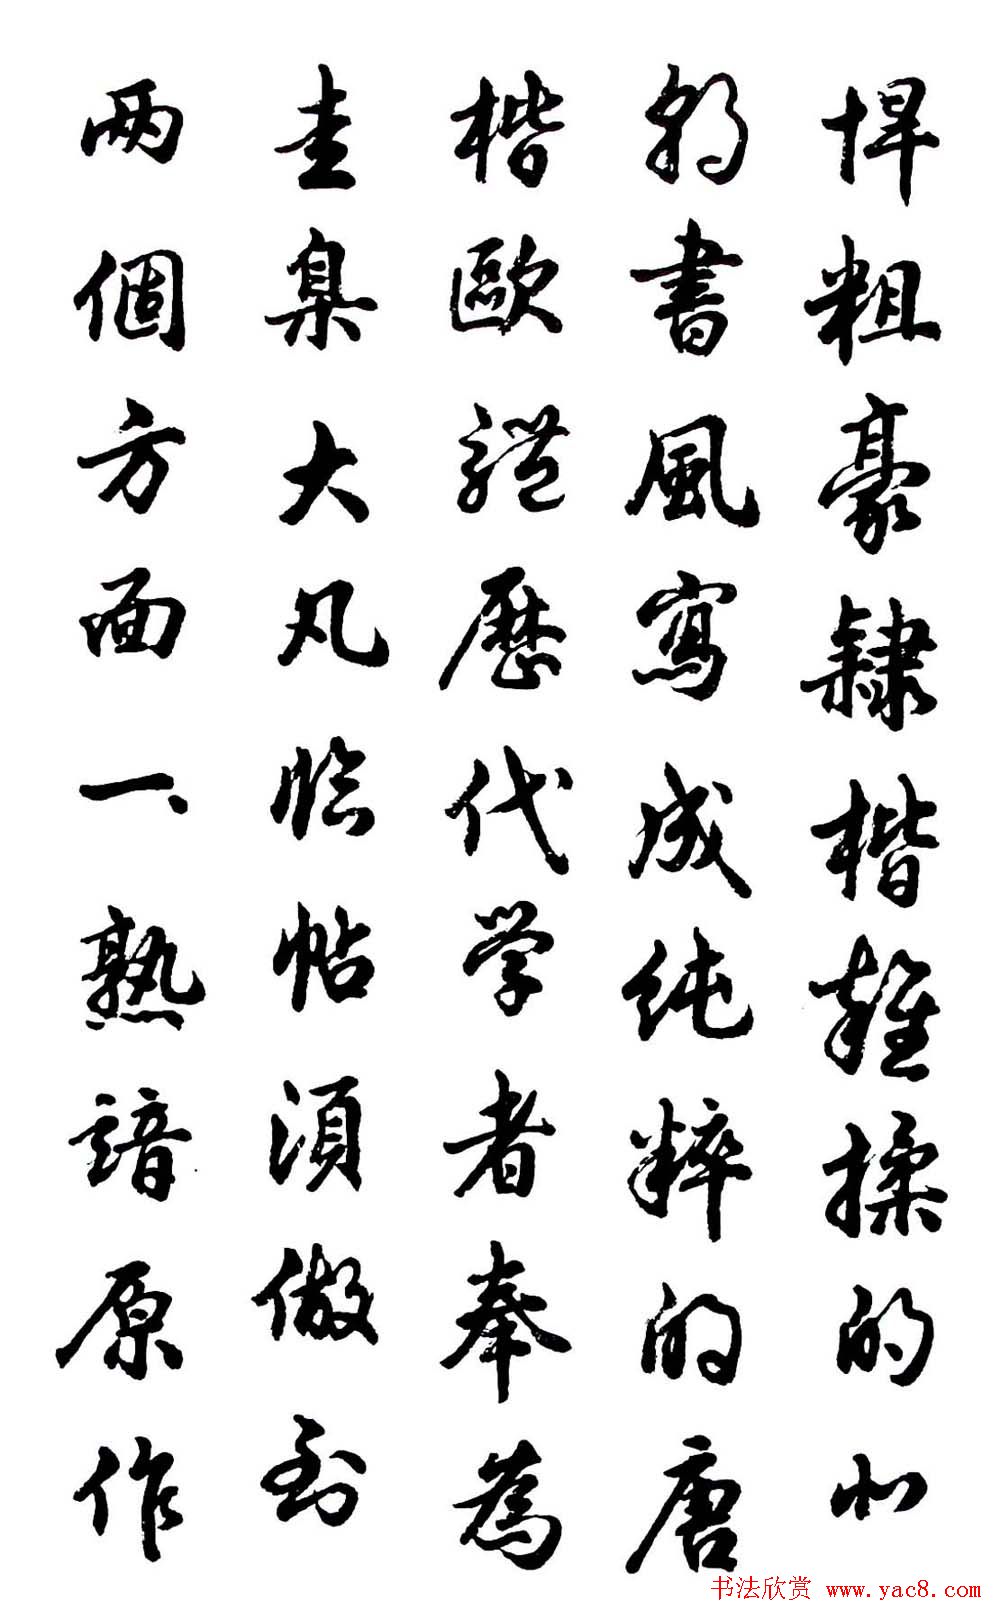 悍粗豪隸楷雜揉的北
朝書風寫成纯粹的唐
楷歐體歷代学者奉為
圭臬大凡临帖須做到
两個方面一、熟諳原作
书法欣赏 www.yac8.com